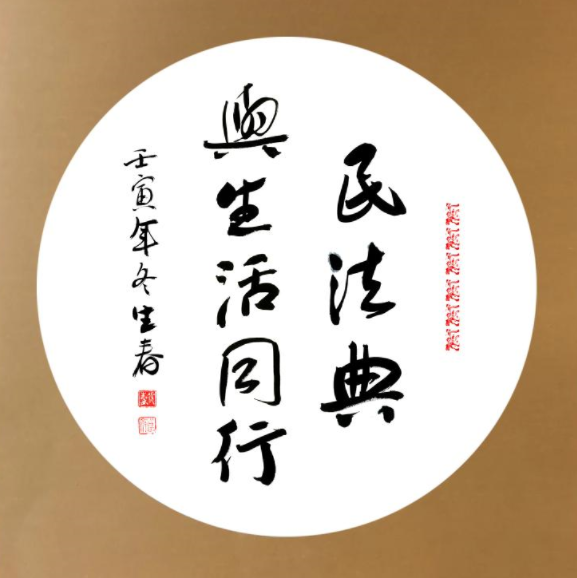 民法典
與生活同行
壬寅年冬生春